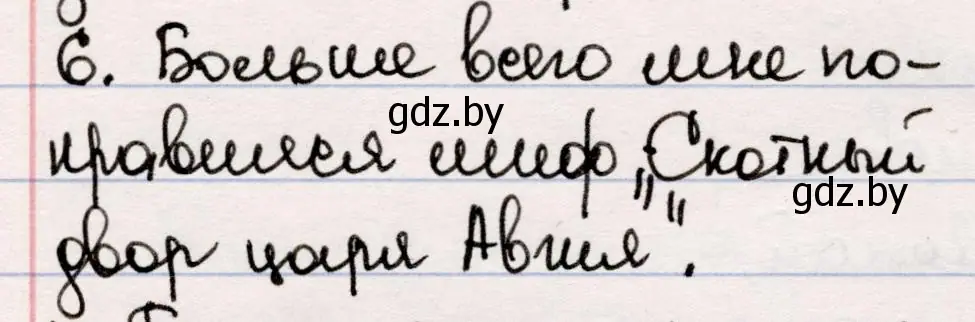 6. Больше всего мне по-
gdz.by
нравился миф „Скотный
gdz.by
двор царя Авгия“.